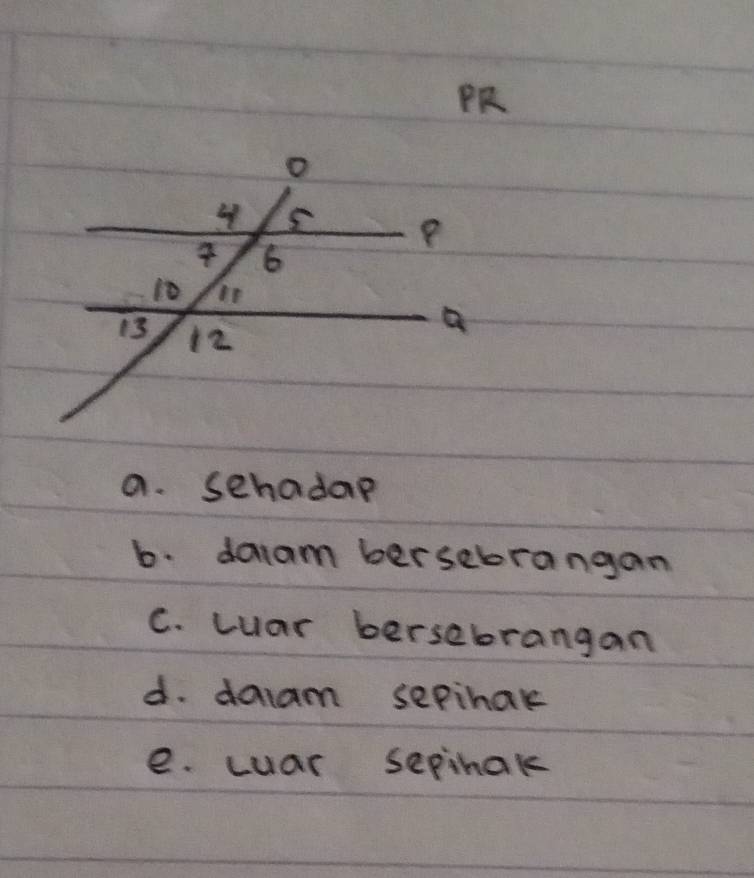 PR
O
4 5
P
7 6
10 11
Q
13 12
a. sehadap
b. dalam bersebrangan
c. Luar bersebrangan
d. dalam sepihak
e. Luar sepihak